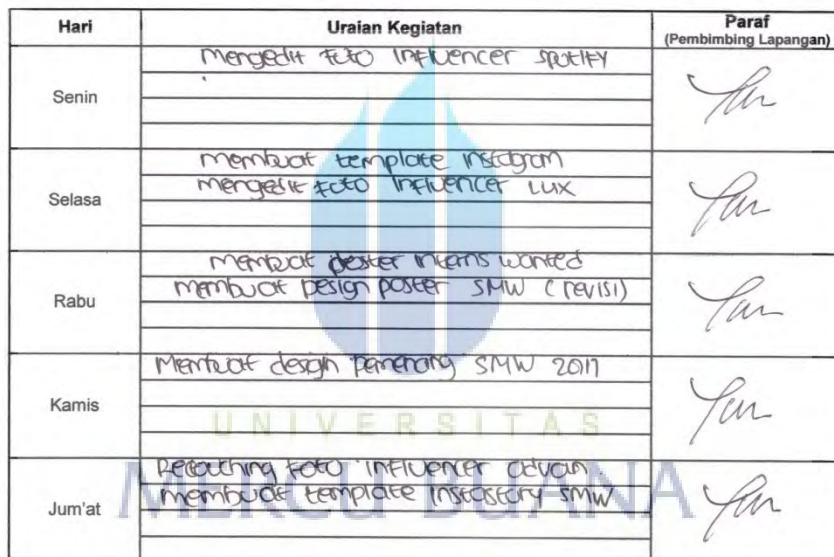 Hari Uraian Kegiatan Paraf
(Pembimbing Lapangan)
Senin
Mengedit foto influencer spotify
Selasa
membuat template instagram
mengedit foto influencer LUX
Rabu
membuat poster interns wanted
membuat design poster SMW (revisi)
Kamis
Membuat design pemenang SMW 2017
Jum'at
Retouching foto influencer advan
membuat template instastory SMW
UNIVERSITAS
MERCU BUANA